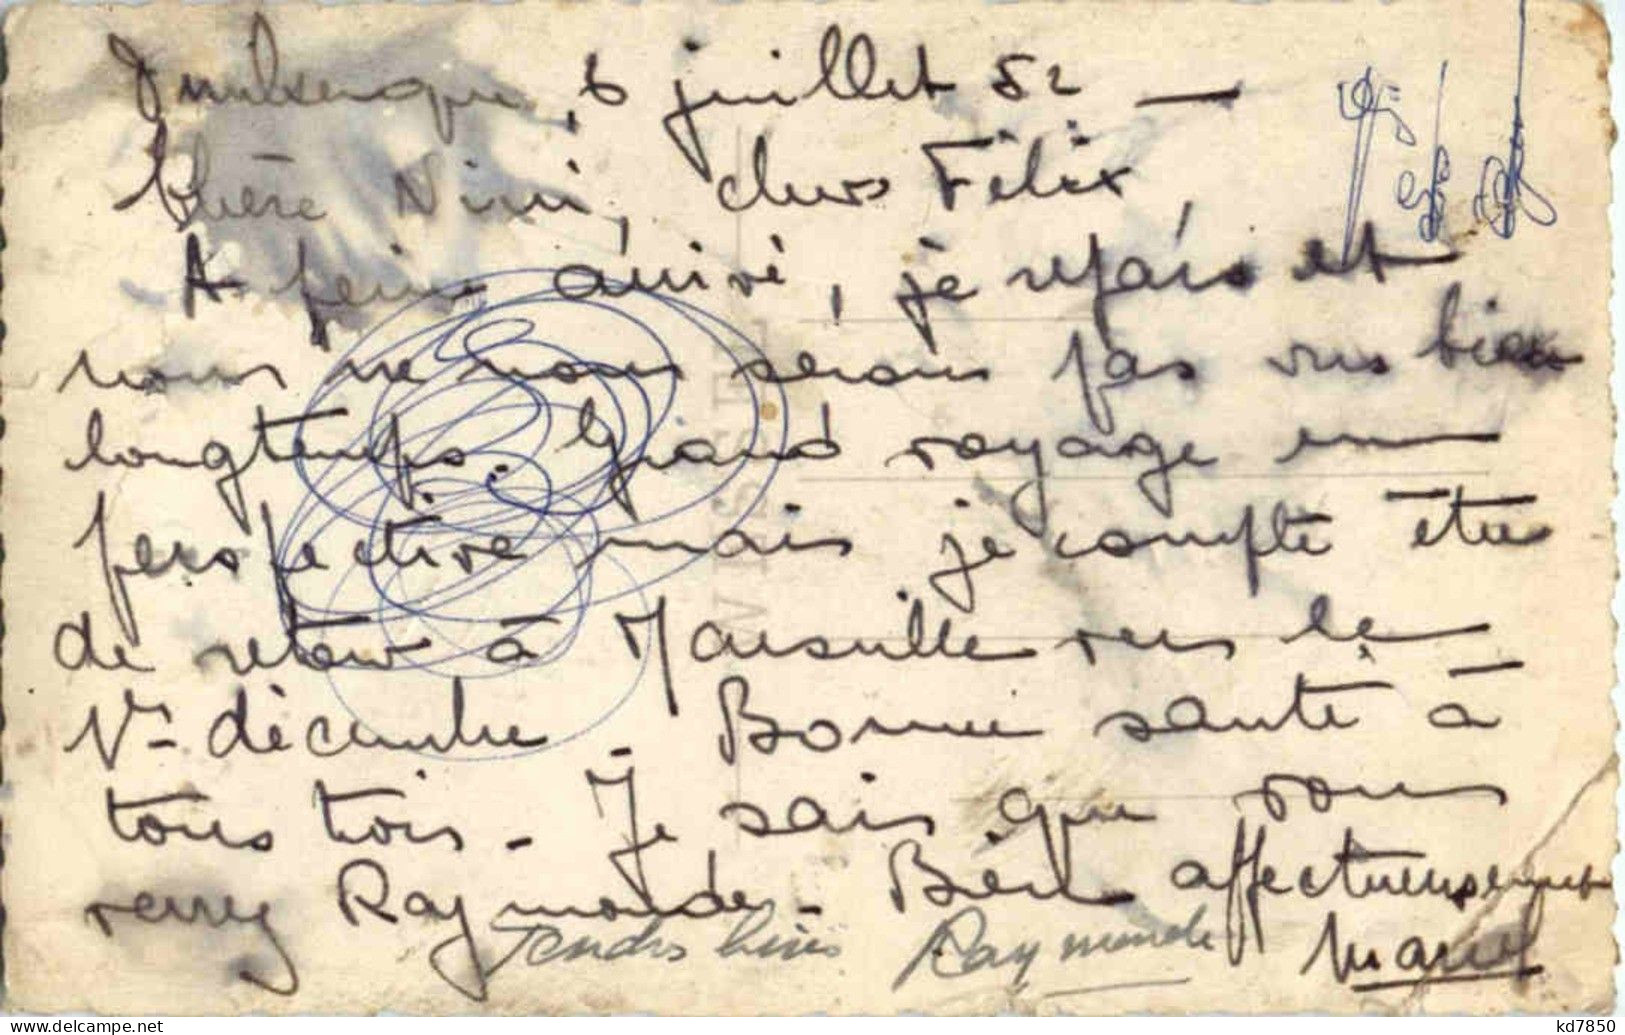 Dunkerque, 6 juillet 52 —
Chère Nini, chers Félix,
A peine arrivé, je repars et
nous ne nous serons pas vus bien
longtemps. Grand voyage en
perspective mais je compte être
de retour à Marseille vers le
1er décembre - Bonne santé à
tous trois - Je sais que vous
verrez Raymonde - Bien affectueusement
Tendres bises Raymonde
Marcel
kd7850